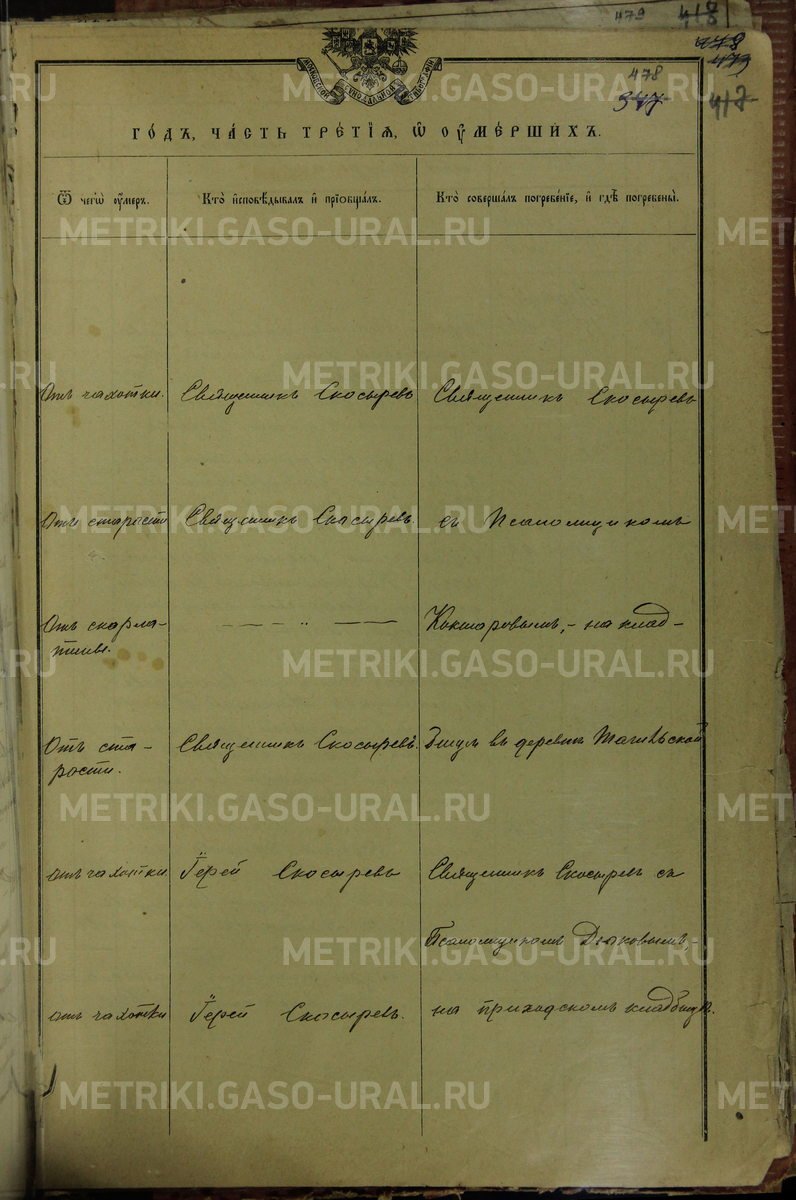 479 418
478
473
478
377
417
МОСКОВСКОЙ СѴНОДАЛЬНОЙ ТИПОГРАФІИ
ГО́ДЪ, ЧА́СТЬ ТРЕ́ТІѦ, Ѡ҆ ОУ҆МЕ́РШИХЪ.
Ѿ чегѡ̀ оу҆́меръ.
Кто̀ и҆сповѣ́дывалъ и҆ прїѡбща́лъ.
Кто̀ соверша́лъ погребе́нїе, и҆ гдѣ̀ погребены̀.
Отъ чахотки. Священникъ Скосыревъ Священникъ Скосыревъ
Отъ старости Священникъ Скосыревъ. съ Псаломщикомъ
Отъ скарла-
тины.
— — „ — —
Кокшаровымъ, - на клад-
Отъ ста-
рости.
Священникъ Скосыревъ.
бищѣ въ деревнѣ Тагильской
отъ чахотки Іерей Скосыревъ Священникъ Скосыревъ съ
Псаломщикомъ Дьяковымъ, -
отъ чахотки Іерей Скосыревъ. на приходскомъ кладбищѣ.
METRIKI.GASO-URAL.RU